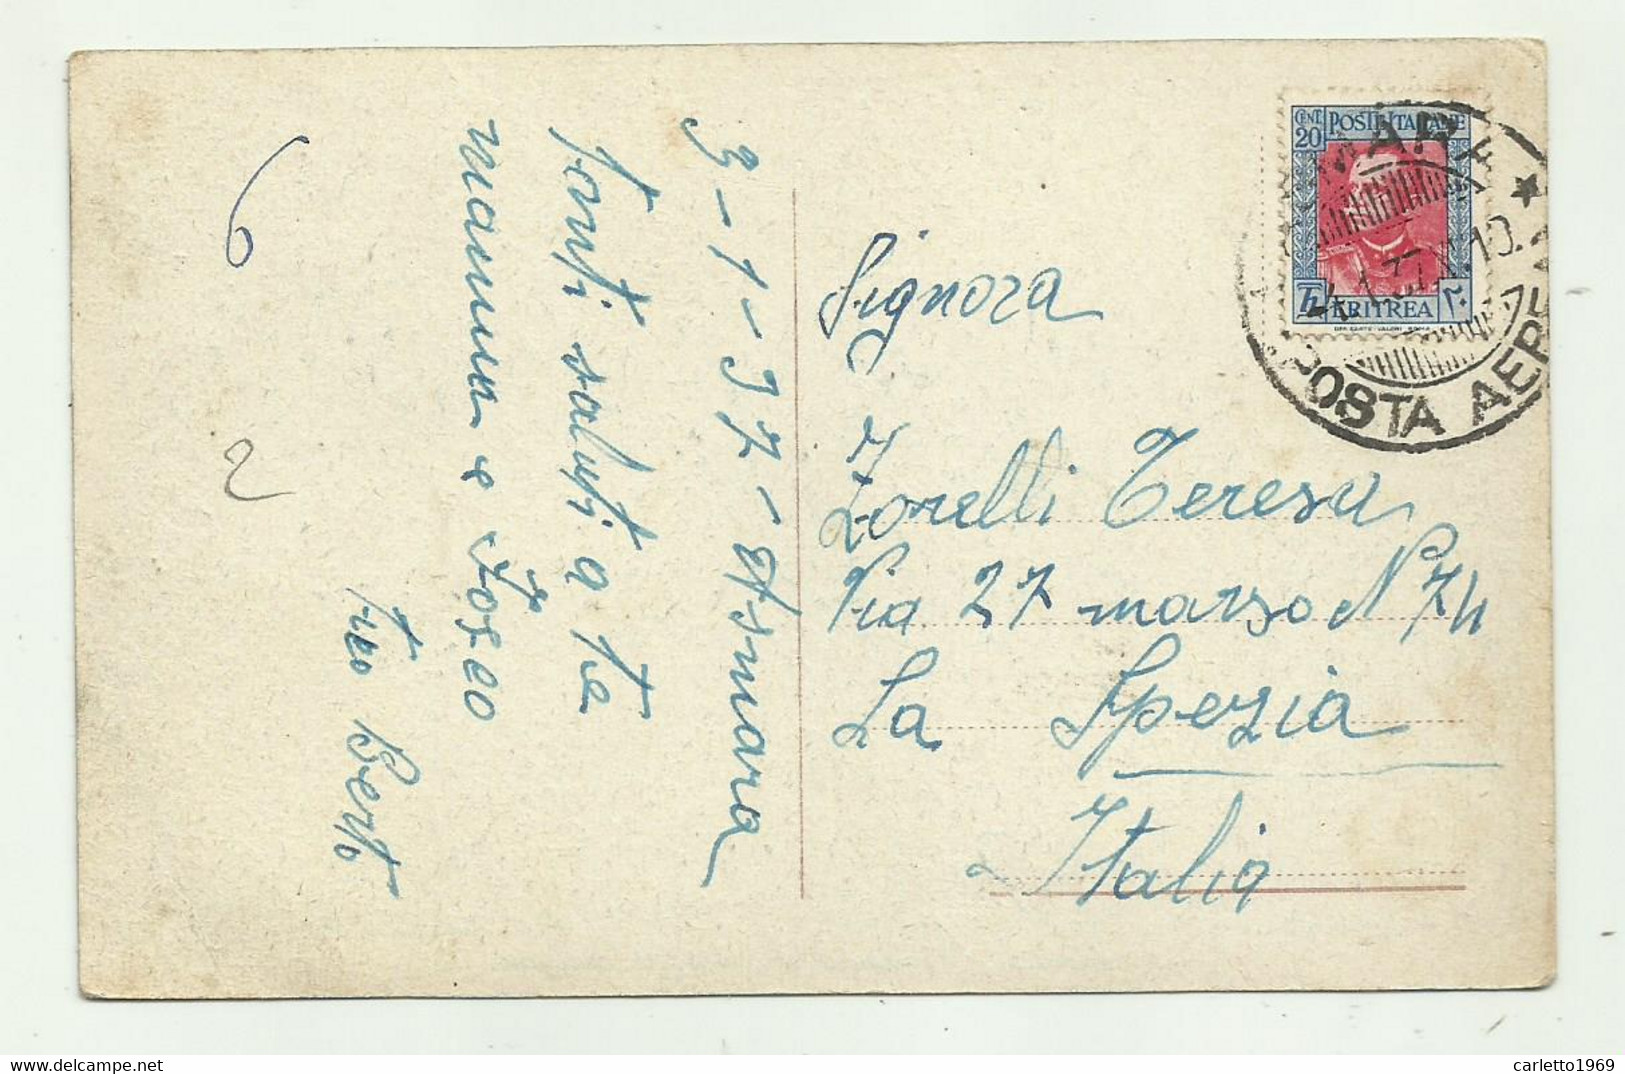 3-1-37- Asmara
Tanti saluti a te
mamma e Ioseo
tuo Berto
6
2
Signora
Zorelli Teresa
Via 27 marzo N 74
La Spezia
Italia
CENT. 20
POSTE ITALIANE
ERITREA
ASMARA
POSTA AEREA
www.delcampe.net
carletto1969